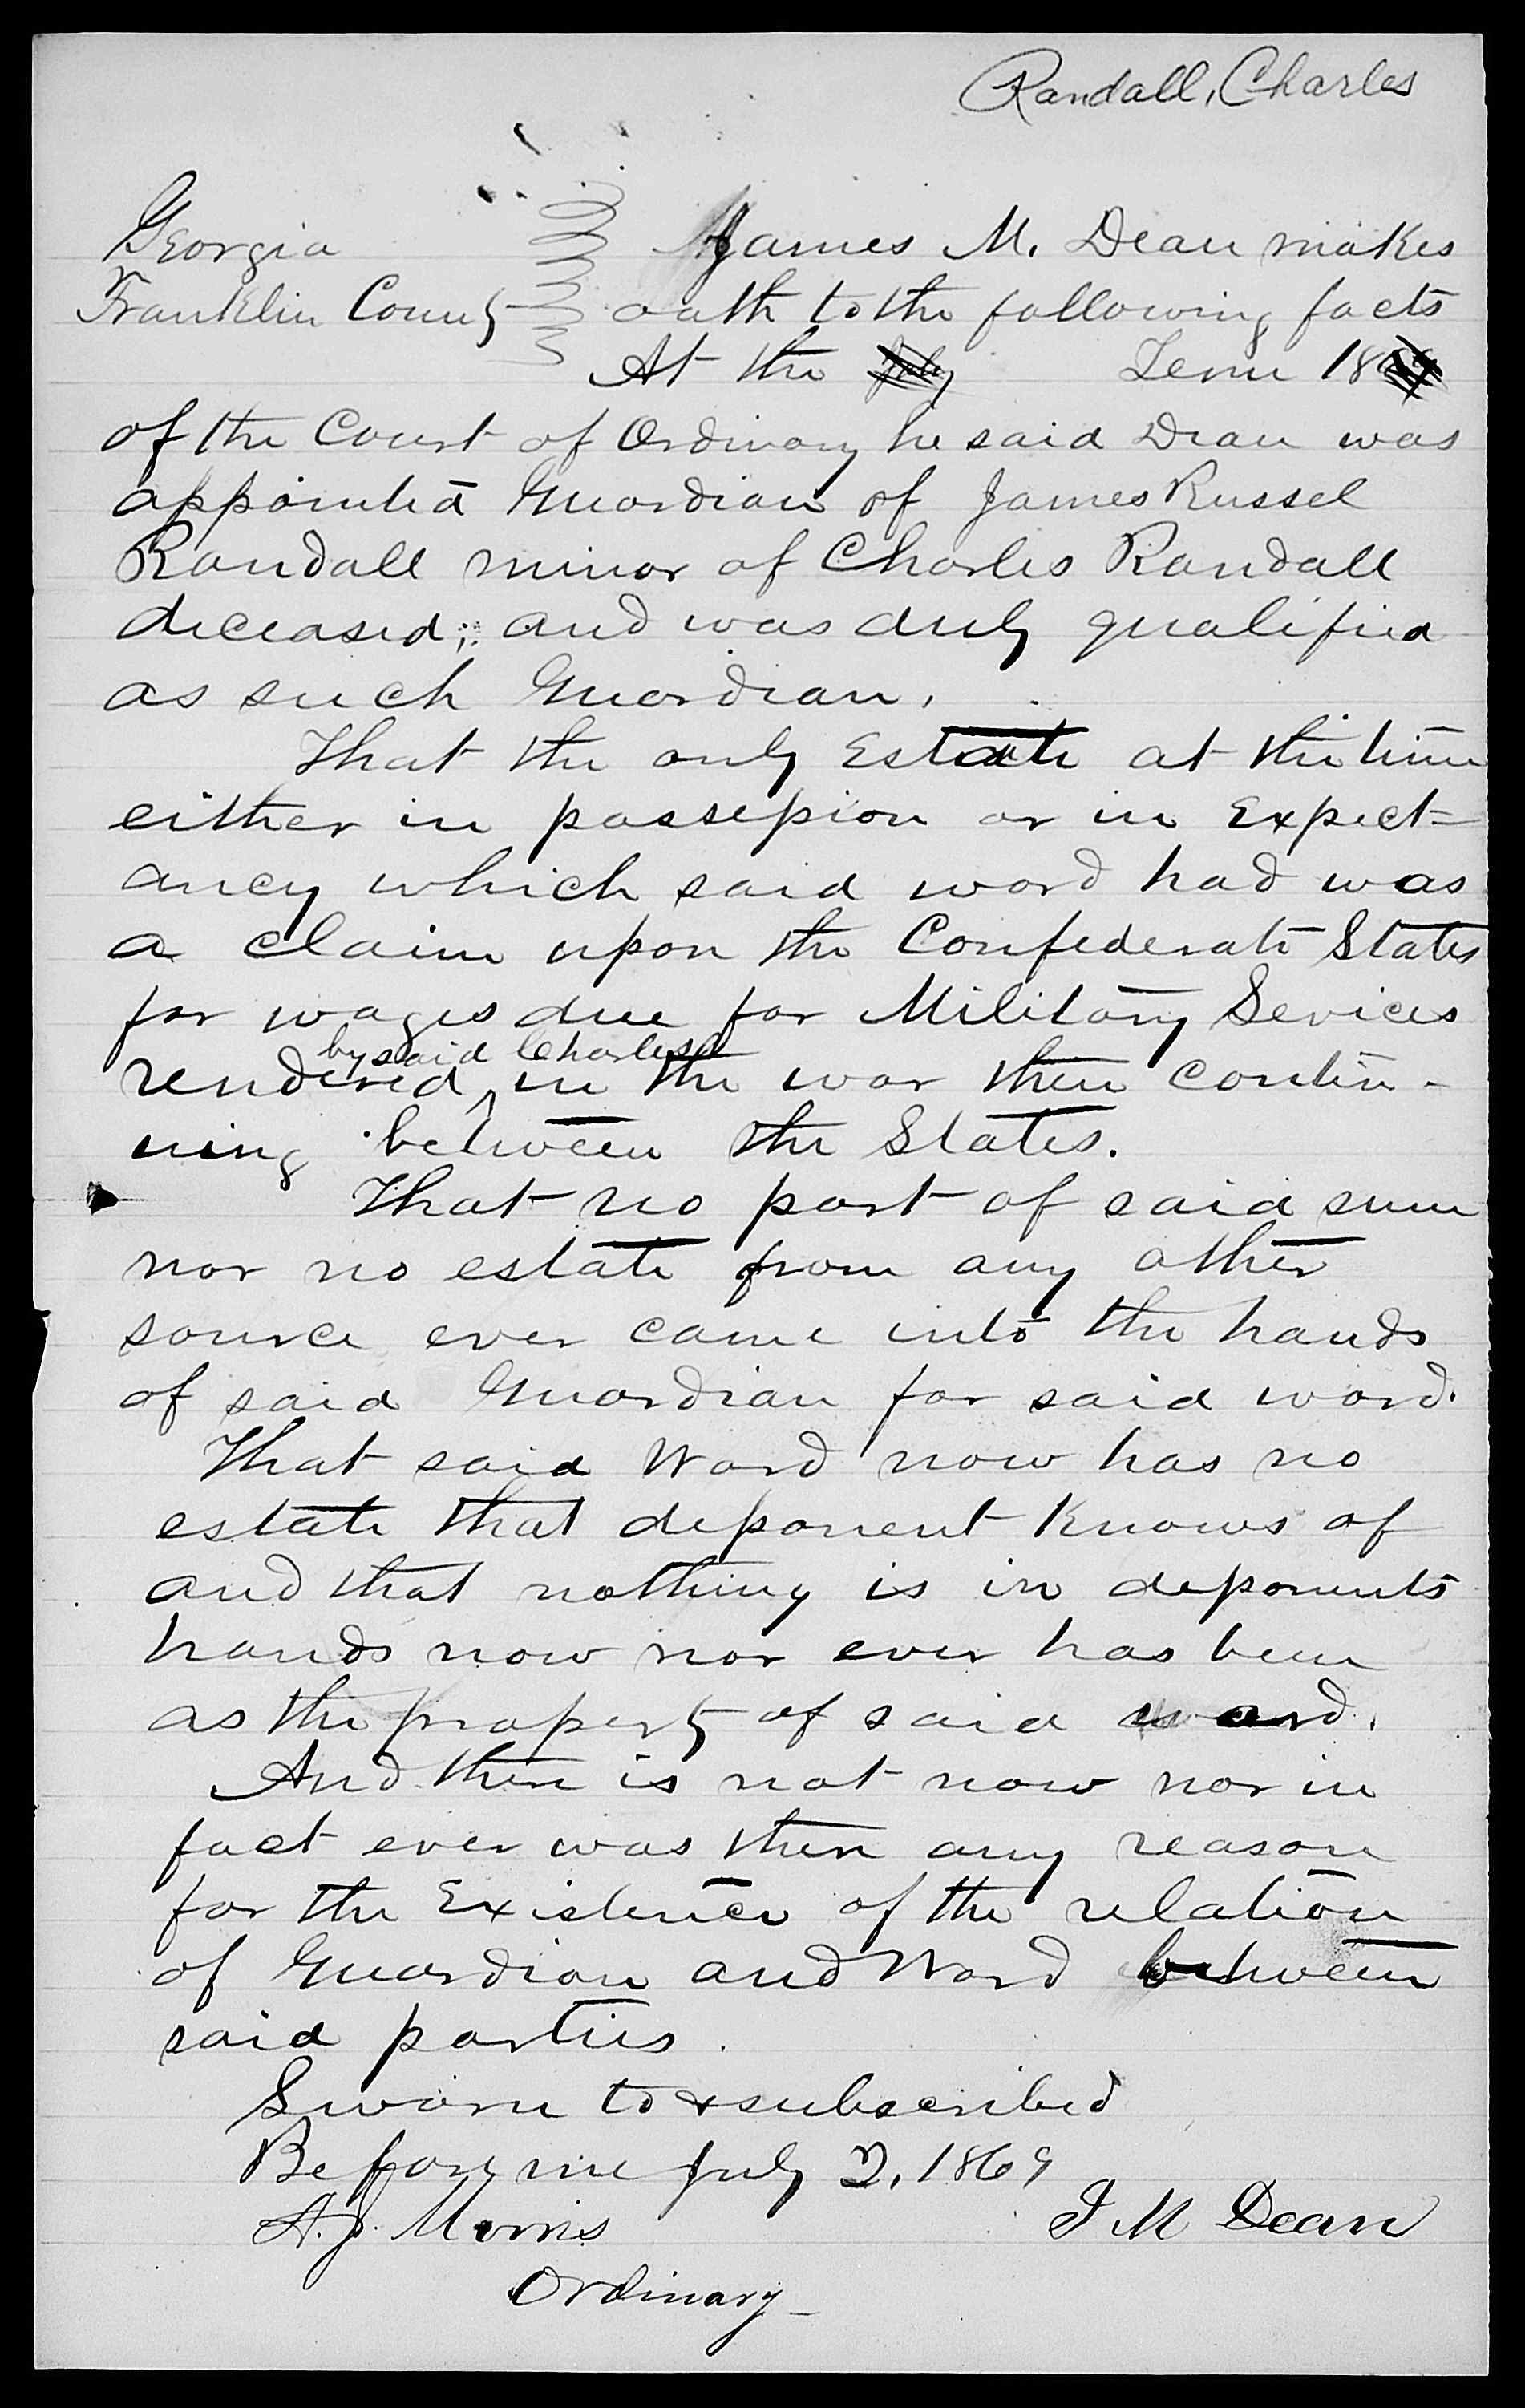 Randall, Charles
Georgia
Franklin County
James M. Dean makes
oath to the following facts
At the July Term 18
of the Court of Ordinary he said Dean was
appointed Guardian of James Russel
Randall minor of Charles Randall
deceased; and was duly qualified
as such Guardian.
That the only Estate at the time
either in possession or in Expect=
ancy which said ward had was
a claim upon the Confederate States
for wages due for Military Sevices
by said Charles
rendered ^ in the war then contin-
uing between the States.
That no part of said sum
nor no estate from any other
source ever came into the hands
of said Guardian for said ward.
That said Ward now has no
estate that deponent Knows of
and that nothing is in deponents
hands now nor ever has been
as the property of said ward.
And there is not now nor in
fact ever was there any reason
for the Existence of the relation
of Guardian and Ward between
said parties.
Sworn to & subscribed
Before me July 2, 1869
A. J. Morris
J M Dean
Ordinary